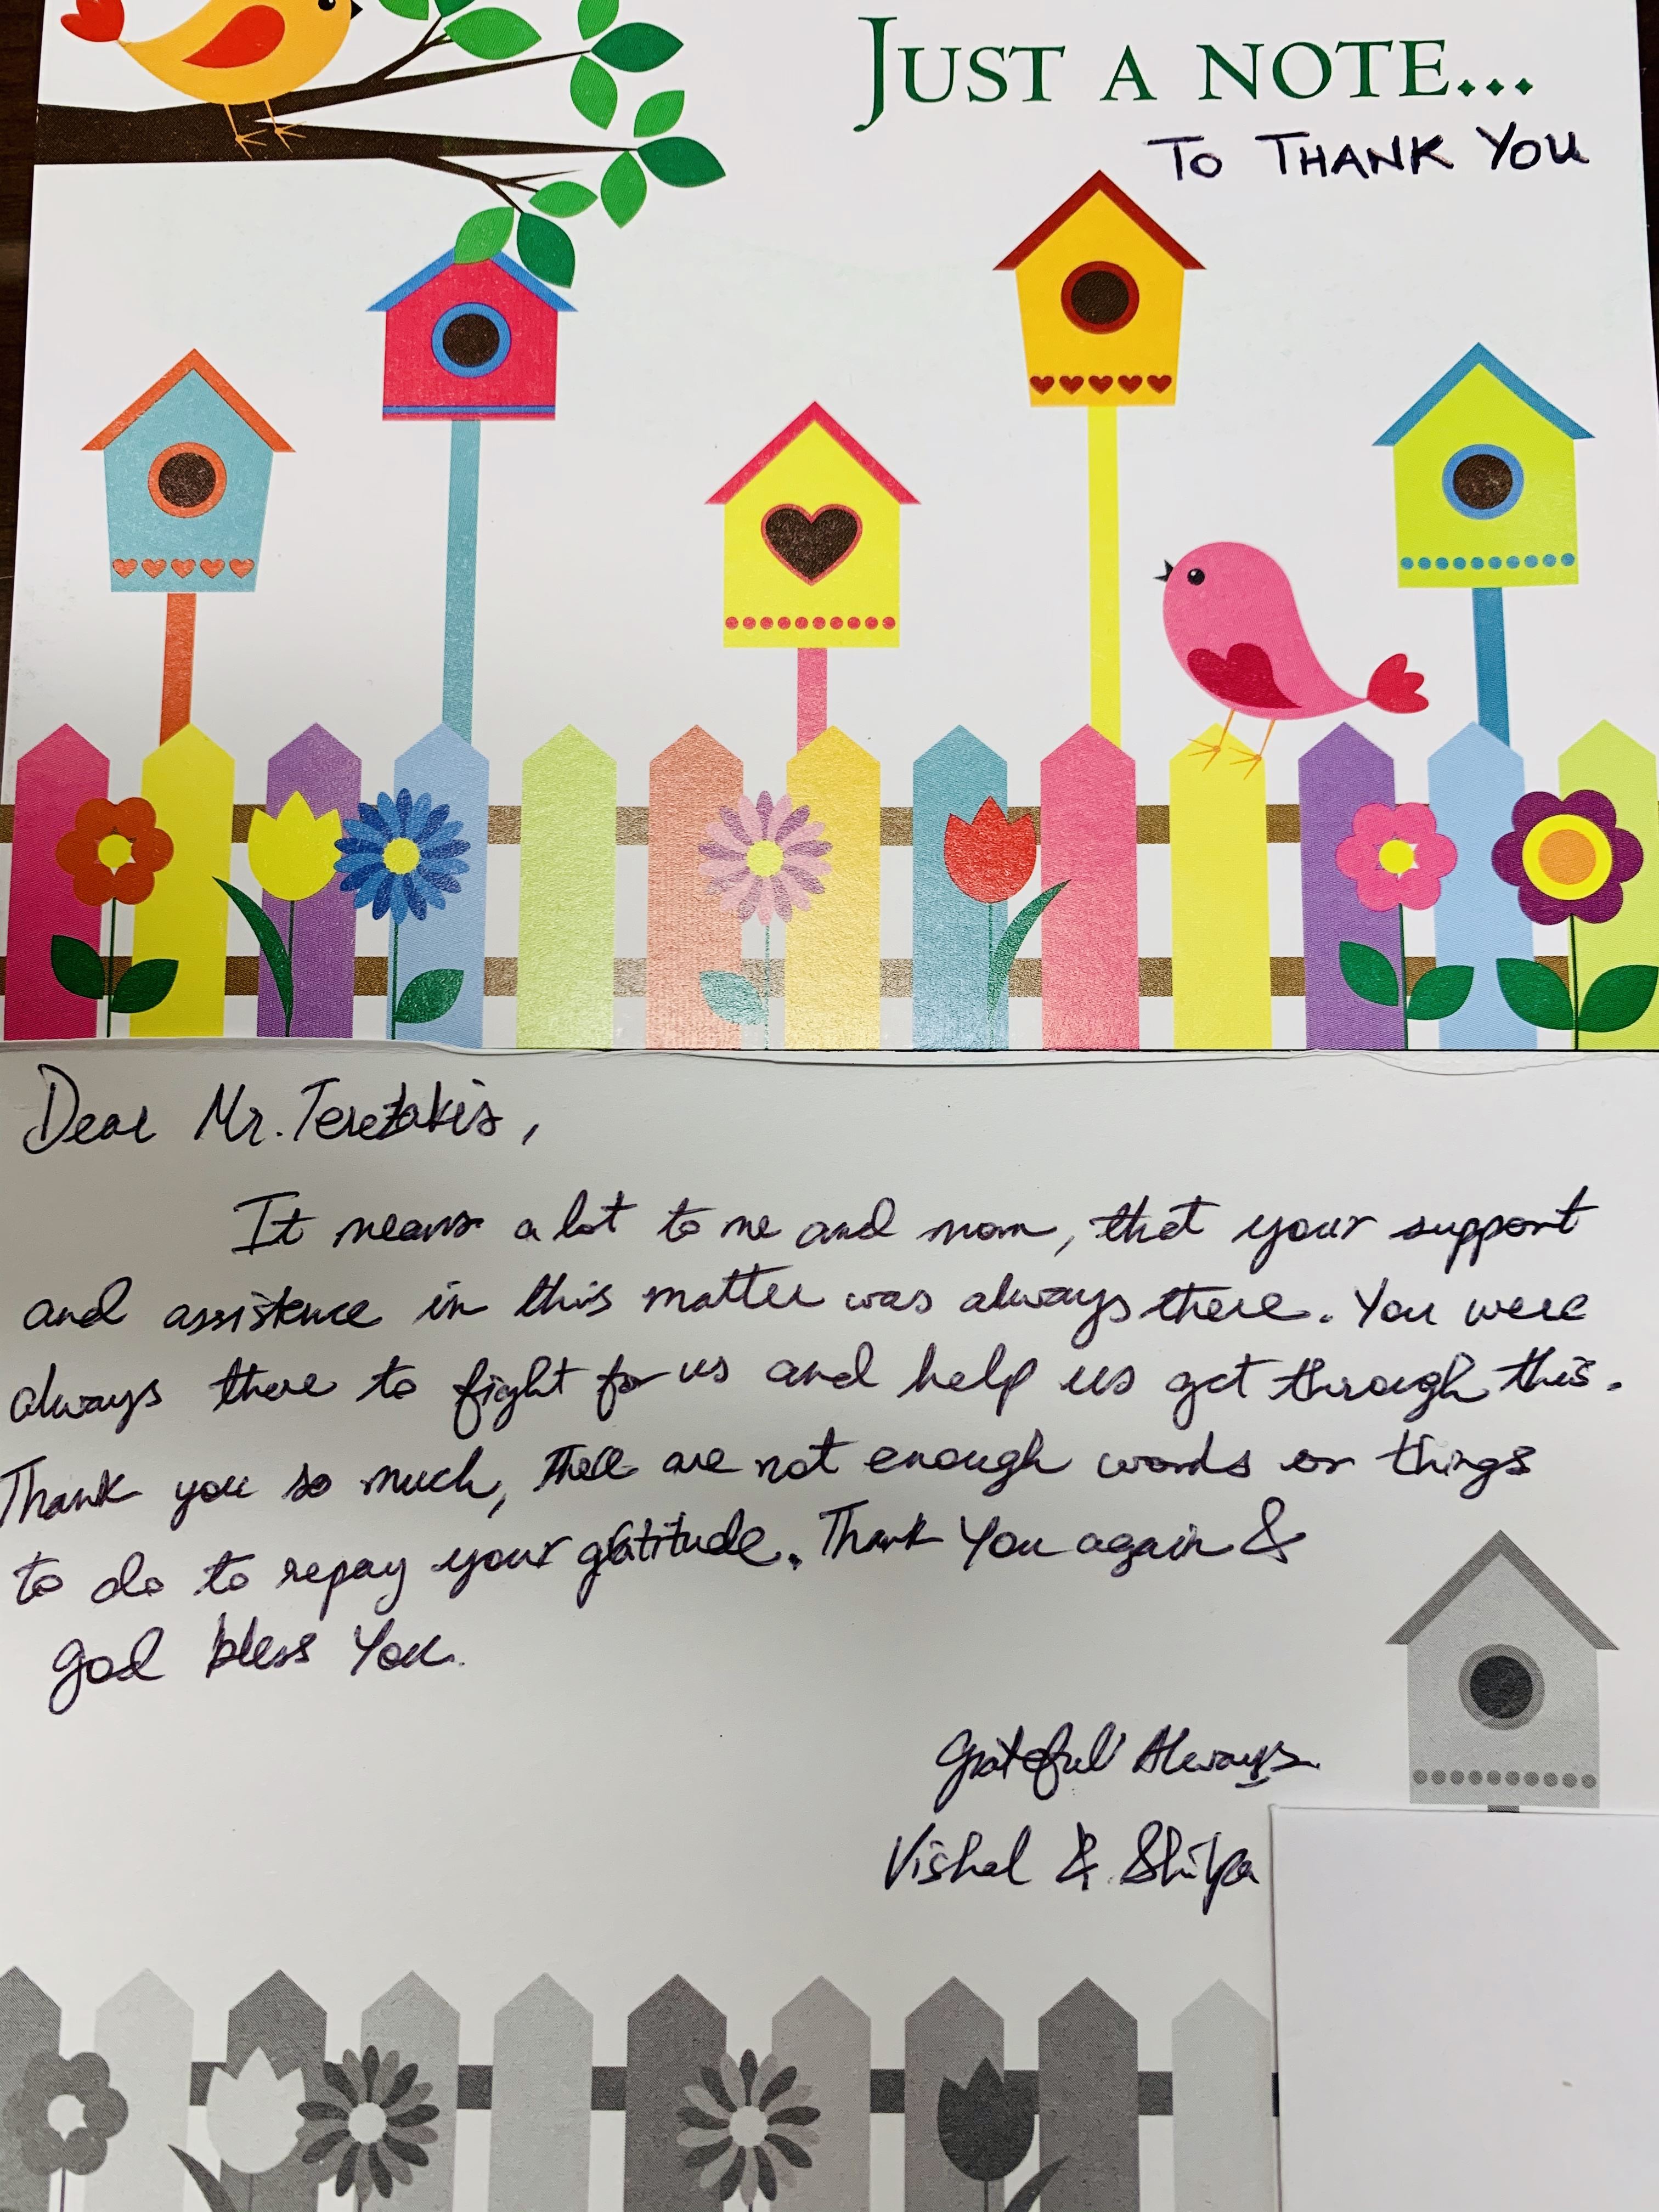 JUST A NOTE...
TO THANK YOU
Dear Mr. Terezakis,
It means a lot to me and mom, that your support
and assistence in this matter was always there. You were
always there to fight for us and help us get through this.
Thank you so much, there are not enough words or things
to do to repay your gratitude. Thank You again &
god bless You.
Grateful Always
Vishal & Shilpa